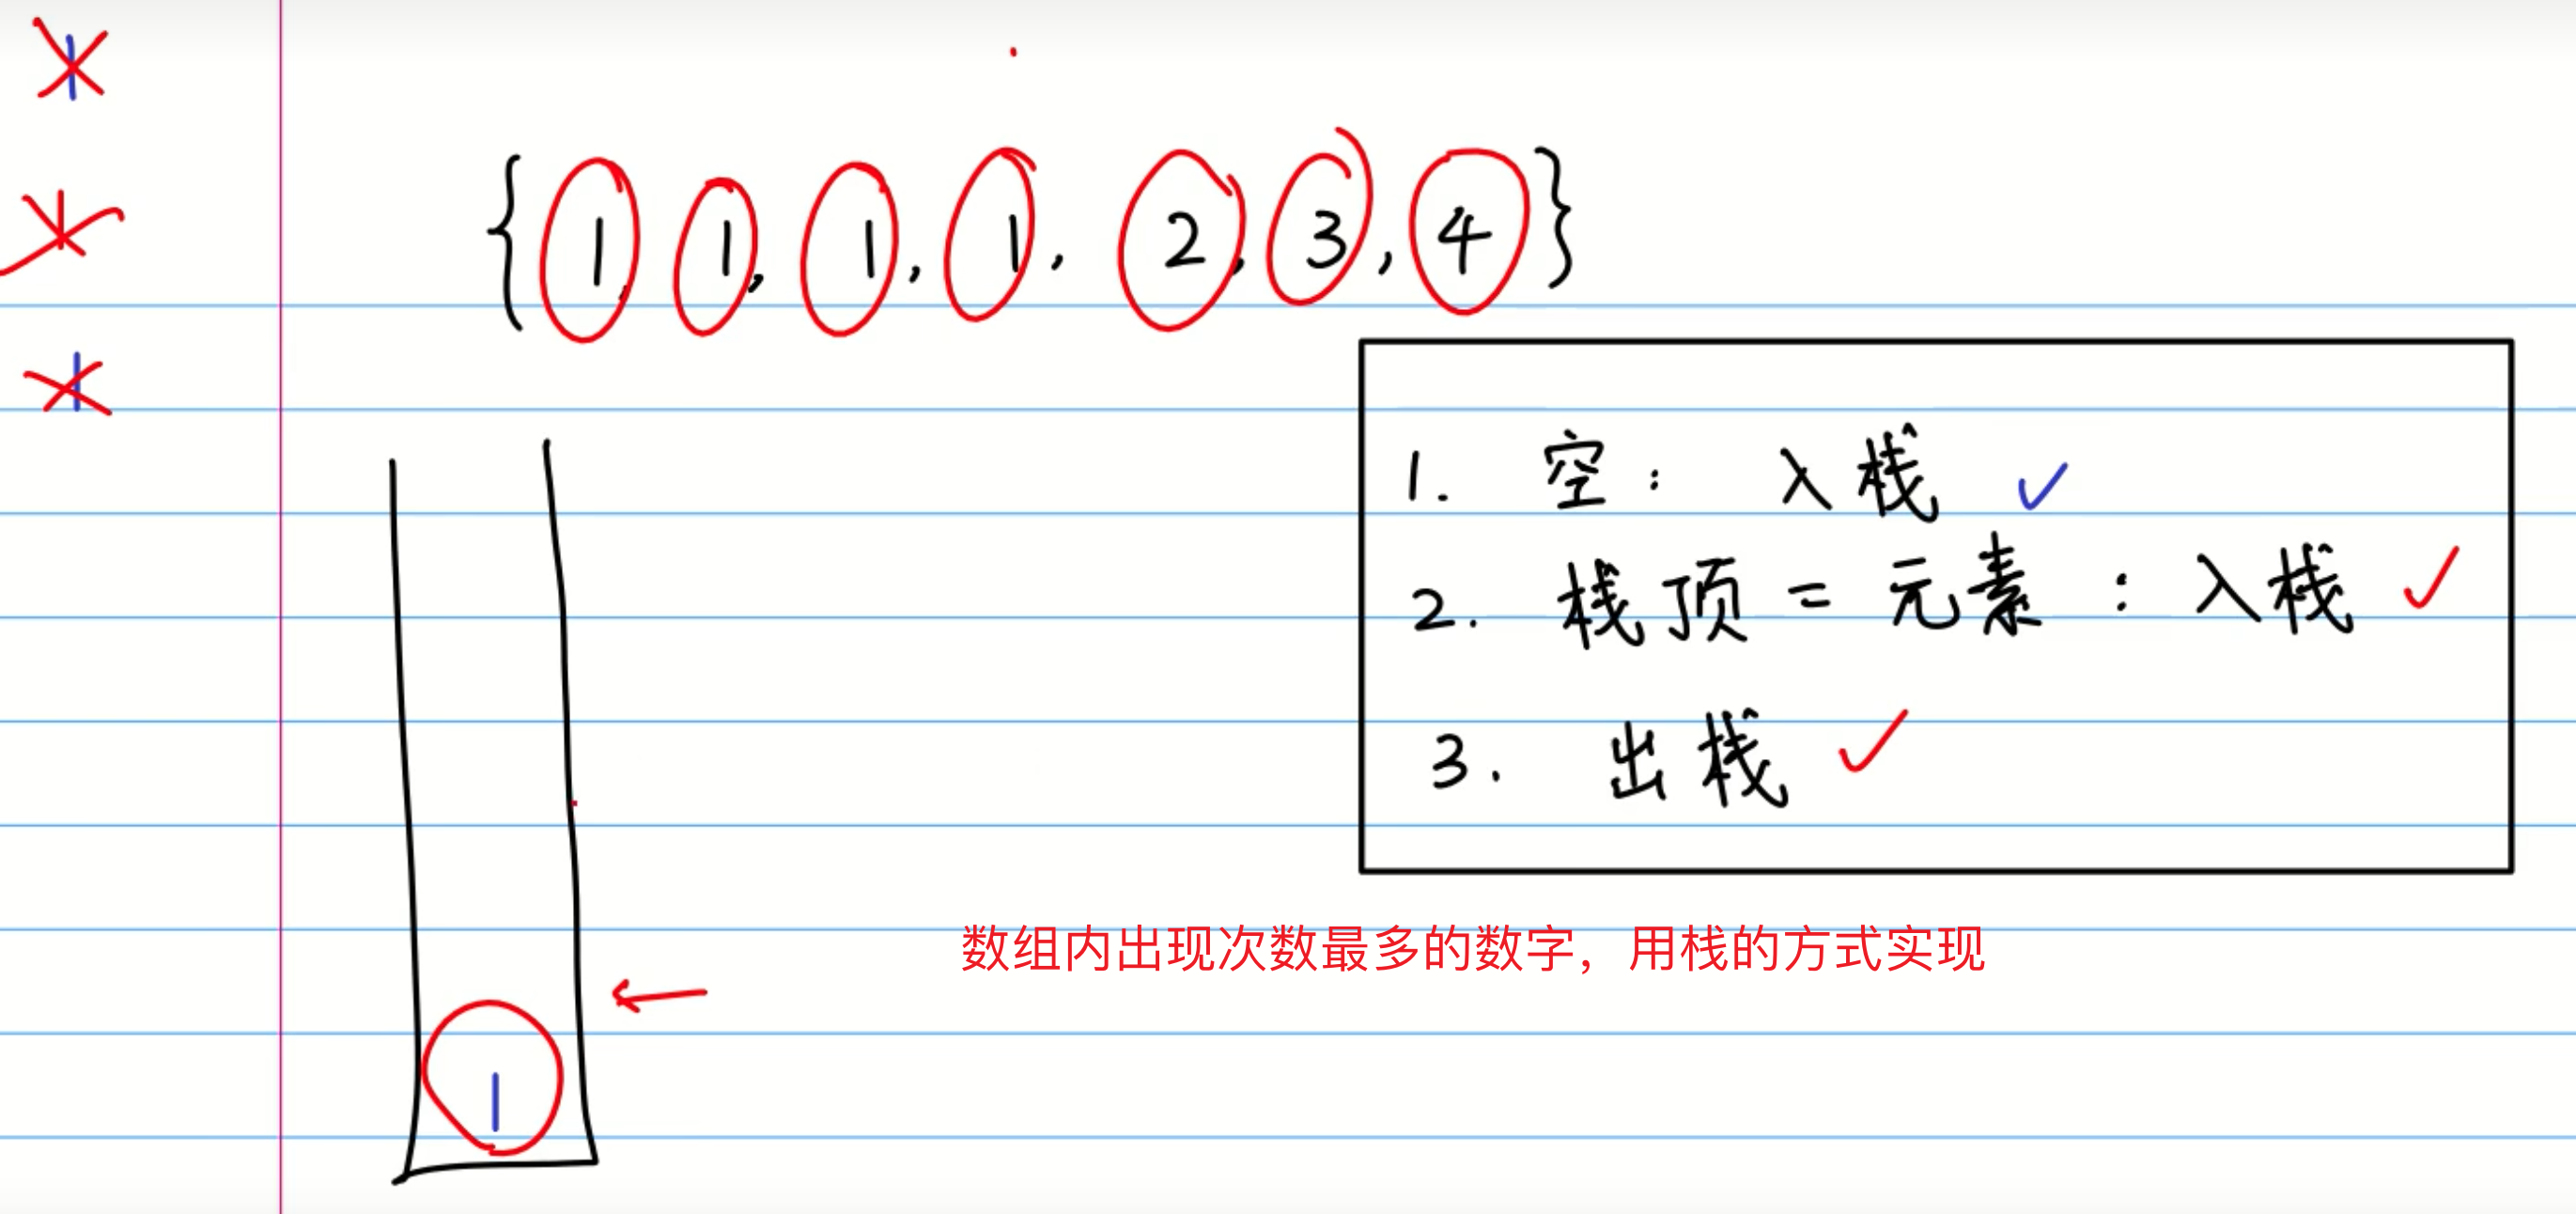 {1, 1, 1, 1, 2, 3, 4}
1. 空: 入栈 ✓
2. 栈顶 = 元素: 入栈 ✓
3. 出栈 ✓
数组内出现次数最多的数字，用栈的方式实现
1